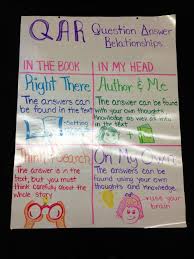 QAR Question Answer
Relationships
IN THE BOOK
Right There
The answers can
be found in the text
Setting
Think & Search
The answer is in the
text, but you must
think carefully about
the whole story.
IN MY HEAD
Author & Me
The answers can be found
with your own thoughts and
knowledge as well as info
in the text
On My Own
The answers can be
found using your own
thoughts and knowledge.
use your
brain